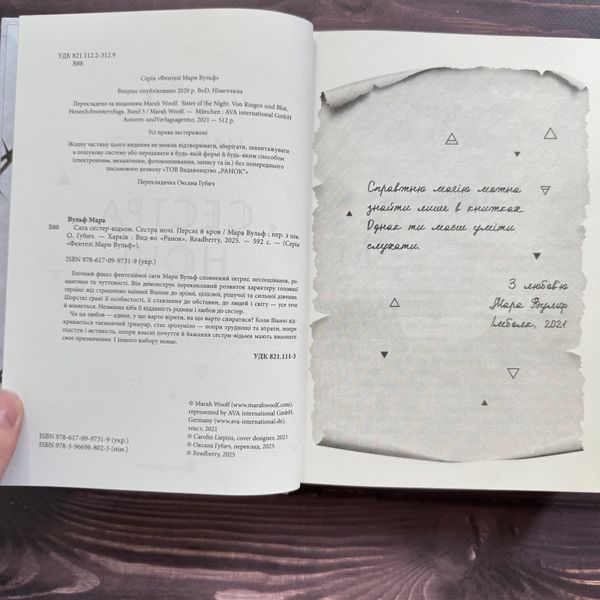 УДК 821.112.2-312.9
В88
Серія «Фентезі Мари Вульф»
Вперше опубліковано 2020 р. BoD, Німеччина
Перекладено за виданням Marah Woolf. Sister of the Night. Von Ringen und Blut.
HexenSchwesternSaga. Band 3 / Marah Woolf. — München : AVA international GmbH
Autoren-und Verlagsagentur, 2021 — 512 p.
Усі права застережені
Жодну частину цього видання не можна відтворювати, зберігати, завантажувати
в пошукову систему або передавати в будь-якій формі й будь-яким способом
(електронним, механічним, фотокопіювання, запису та ін.) без попереднього
письмового дозволу «ТОВ Видавництво „РАНОК“»
Перекладачка Оксана Губич
Вульф Мара
В88 Сага сестер-відьом. Сестра ночі. Персні й кров / Мара Вульф ; пер. з нім.
О. Губич. — Харків : Вид-во «Ранок», Readberry, 2025. — 592 с. — (Серія
«Фентезі Мари Вульф»).
ISBN 978-617-09-9731-9 (укр.)
Епічний фінал фентезійної саги Мари Вульф сповнений інтриг, несподіванок, ро-
мантики та чуттєвості. Він демонструє переконливий розвиток характеру головної
героїні: від страшенно наївної Віанни до зрілої, цілісної, рішучої та сильної дівчини.
Шорсткі грані її особистості, її ставлення до обставин, до людей і світу — усе геть
й міняється. Незмінна хіба її відданість рідним і любов до сестер.
Чи ця любов — єдине, у що варто вірити, на що варто спиратися? Коли Віанні від-
кривається таємничий гримуар, стає зрозуміло — попри труднощі та втрати, попри
підступ і мстивість, попри власні почуття й бажання сестри-відьми мають виконати
своє призначення. І іншого вибору немає.
УДК 821.111-3
© Marah Woolf (www.marahwoolf.com),
represented by AVA international GmbH,
Germany (www.ava-international.de),
текст, 2021
© Carolin Liepins, cover designer, 2021
© Оксана Губич, переклад, 2025
© Readberry, 2025
ISBN 978-617-09-9731-9 (укр.)
ISBN 978-3-96698-802-5 (нім.)
Справжню магію можна
знайти лише в книжках.
Однак ти маєш уміти
слухати.
З любов'ю
Мара Вульф
2021